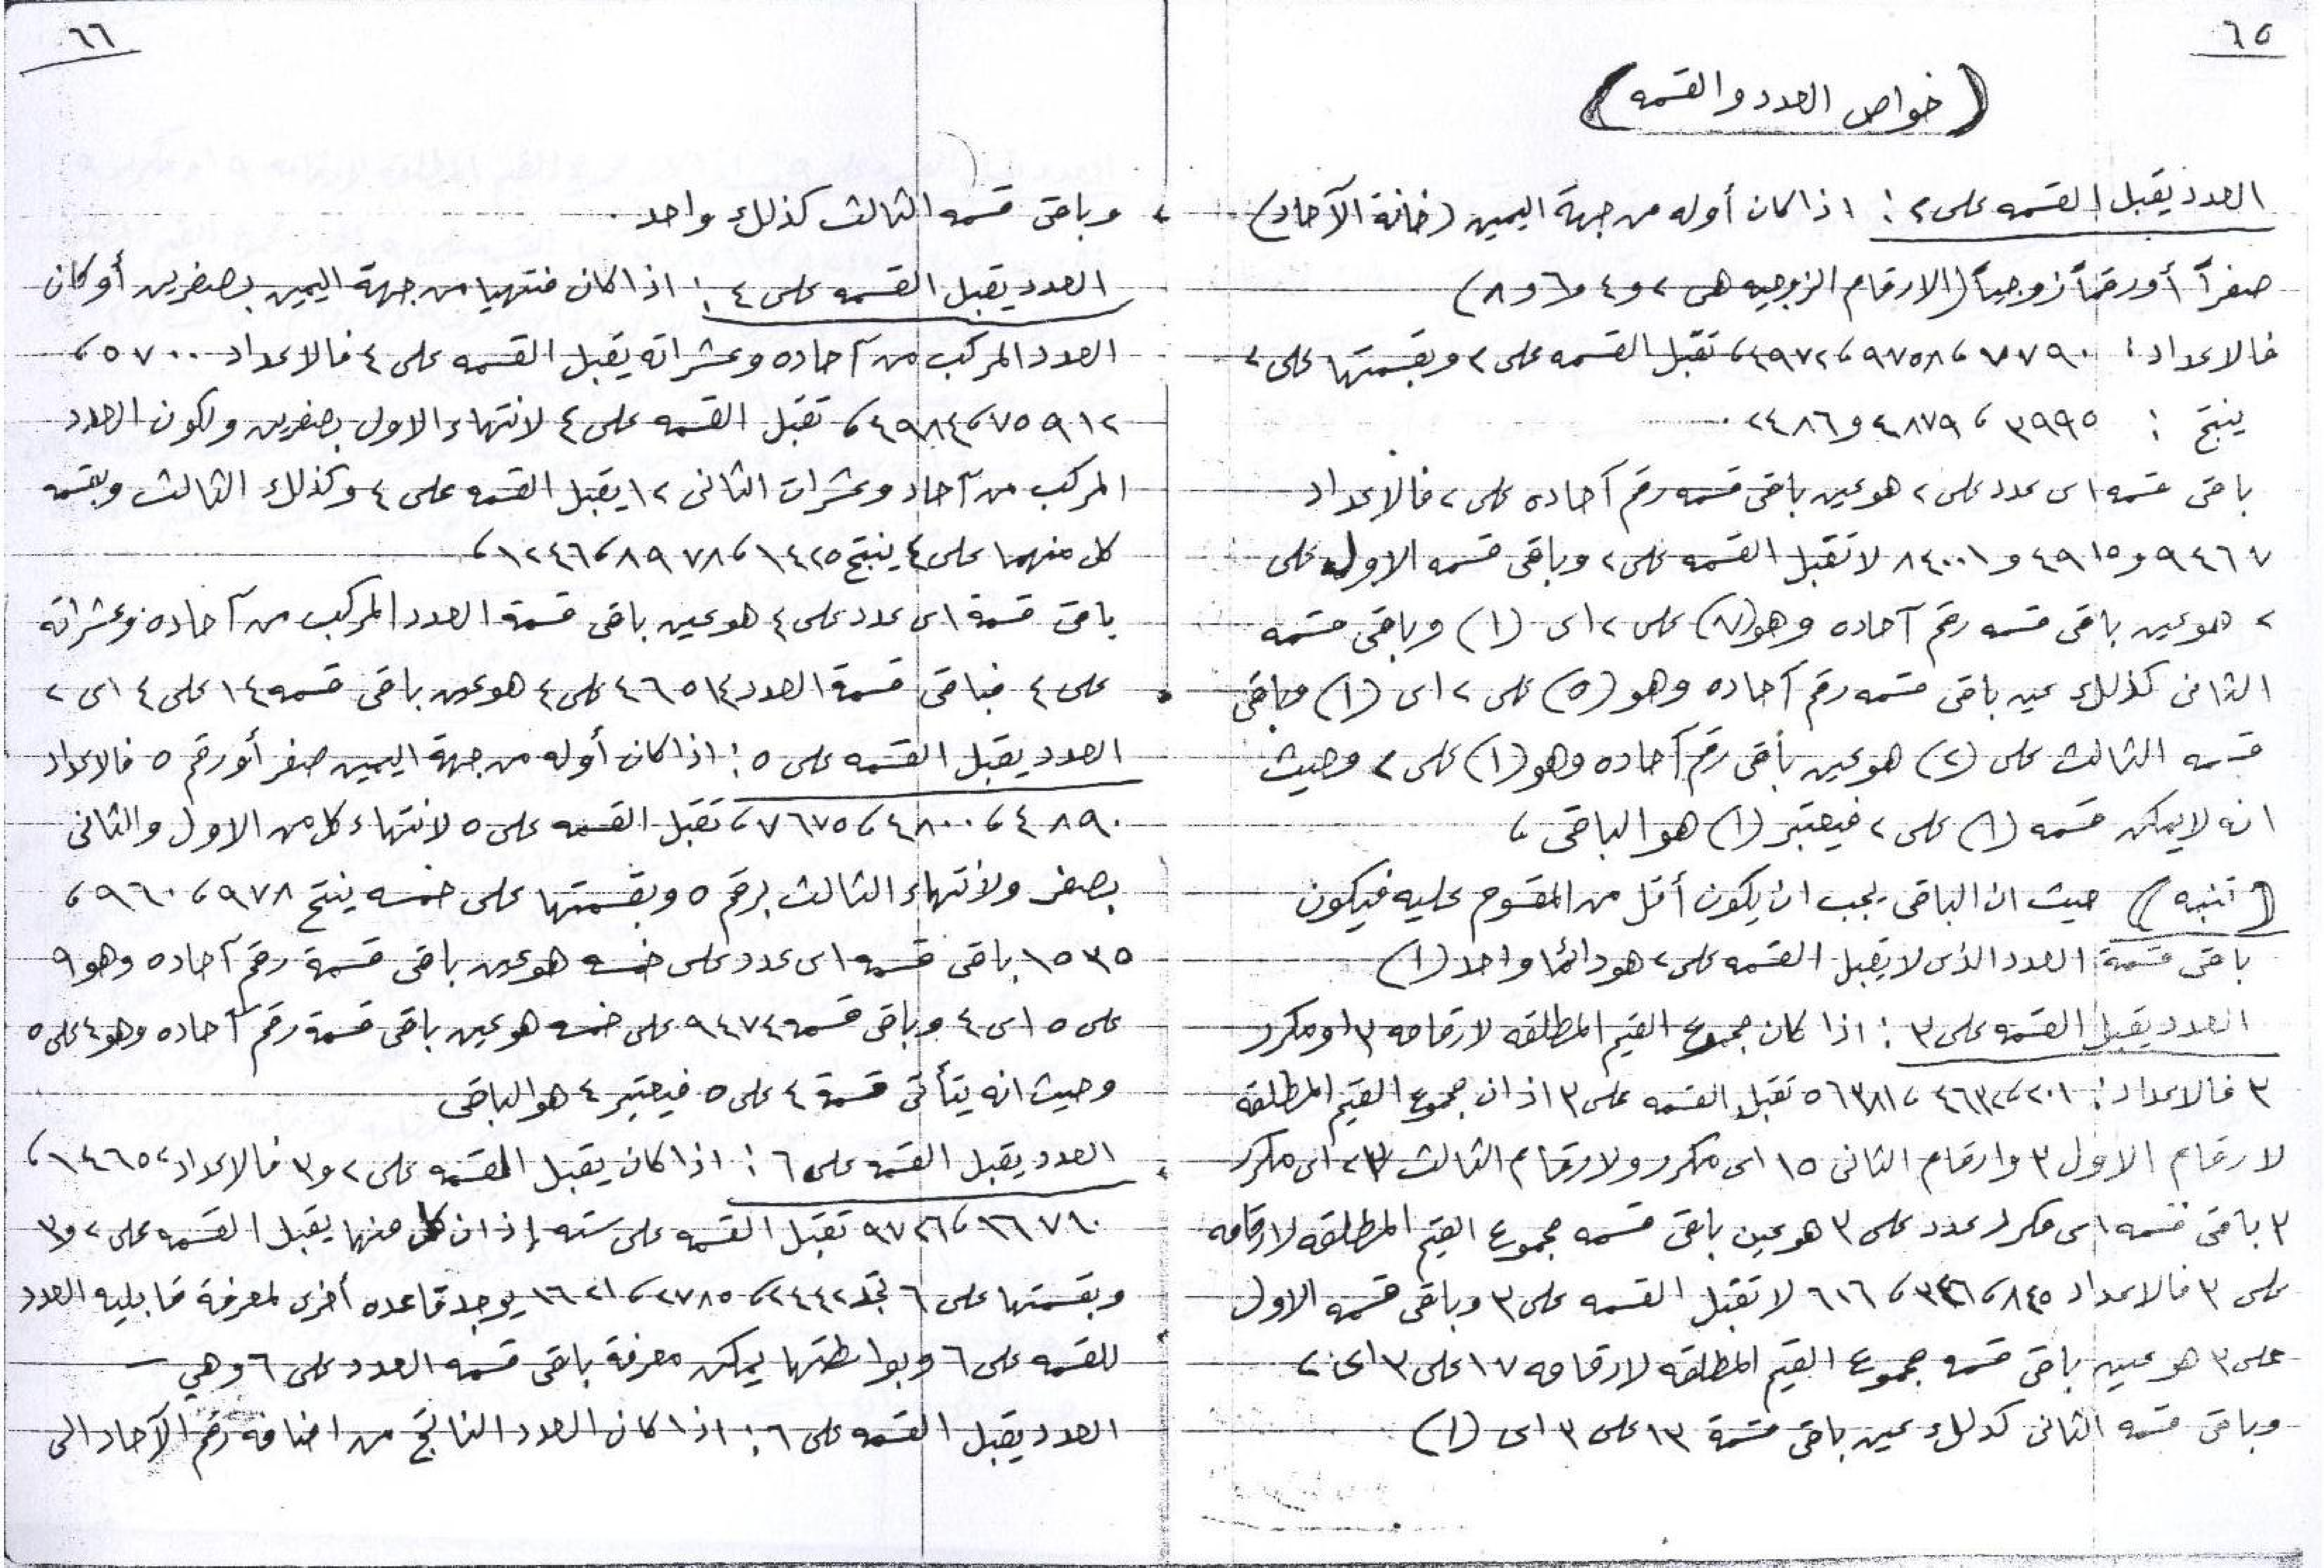 ٦٥
(خواص العدد والقسمه)
العدد يقبل القسمه على ٢ : اذا كان أوله من جهة اليمين (خانة الآحاد)
صفراً أو رقماً زوجياً (الارقام الزوجيه هى ٢ و ٤ و ٦ و ٨)
فالاعداد : ٧٧٩٠، ٩٧٥٨، ٤٩٧٢، تقبل القسمه على ٢ وبقسمتها على ٢
ينتج : ٣٩٩٥، ٤٨٧٩ و ٢٤٨٦ ٠
باقى قسمه اى عدد على ٢ هو عين باقى قسمه رقم آحاده على ٢ فالاعداد
٩٤٦٧ و ٤٩١٥ و ٨٤٠٠١ لا تقبل القسمه على ٢ وباقى قسمه الاول على
٢ هو عين باقى قسمه رقم آحاده وهو (٧) على ٢ اى (١) وباقى قسمه
الثانى كذلك عين باقى قسمه رقم آحاده وهو (٥) على ٢ اى (١) وباقى
قسمه الثالث على (٢) هو عين باقى رقم آحاده وهو (١) على ٢ وحيث
انه لا يمكن قسمه (١) على ٢ فيعتبر (١) هو الباقى ،
(تنبه) حيث ان الباقى يجب ان يكون أقل من المقسوم عليه فيكون
باقى قسمة العدد الذى لا يقبل القسمه على ٢ هو دائما واحد (١)
العدد يقبل القسمه على ٣ : اذا كان مجموع القيم المطلقه لارقامه ٣ او مكرر
٣ فالاعداد : ٢٠١، ٤٦٣٢، ٥٦٣٨١ تقبل القسمه على ٣ اذ ان مجموع القيم المطلقه
لارقام الاول ٣ وارقام الثانى ١٥ اى مكرر ولارقام الثالث ٢٣ اى مكرر
٣ باقى قسمه اى مكرر عدد على ٣ هو عين باقى قسمه مجموع القيم المطلقه لارقامه
على ٣ فالاعداد ٨٤٥، ٣٤٦، ٦١٦ لا تقبل القسمه على ٣ وباقى قسمه الاول
على ٣ هو عين باقى قسمه مجموع القيم المطلقه لارقامه ١٧ على ٣ اى ٢
وباقى قسمه الثانى كذلك عين باقى قسمة ١٣ على ٣ اى (١)
٦٦
، وباقى قسمه الثالث كذلك واحد ٠
العدد يقبل القسمه على ٤ : اذا كان منتهيا من جهة اليمين بصفرين أو كان
العدد المركب من آحاده وعشراته يقبل القسمه على ٤ فالاعداد ٥٧٠٠،
٧٥٩١٢، ٤٩٨٤، تقبل القسمه على ٤ لانتهاء الاول بصفرين ولكون العدد
المركب من آحاد وعشرات الثانى ١٢ يقبل القسمه على ٤ وكذلك الثالث وبقسمه
كل منهما على ٤ ينتج ١٤٢٥، ٨٩٧٨، ١٢٤٦،
باقى قسمة اى عدد على ٤ هو عين باقى قسمة العدد المركب من آحاده وعشراته
على ٤ فباقى قسمة العدد ٤٦٥١٤ على ٤ هو عين باقى قسمه ١٤ على ٤ اى ٢
العدد يقبل القسمه على ٥ : اذا كان أوله من جهة اليمين صفر أو رقم ٥ فالاعداد
٤٨٩٠، ٤٨٠٠، ٧٦٧٥، تقبل القسمه على ٥ لانتهاء كل من الاول والثانى
بصفر ولانتهاء الثالث برقم ٥ وبقسمتها على خمسه ينتج ٩٧٨، ٩٦٠،
١٥٣٥ باقى قسمه اى عدد على خمسه هو عين باقى قسمة رقم آحاده وهو ٩
على ٥ اى ٤ وباقى قسمه ٩٤٧٤ على خمسه هو عين باقى قسمة رقم آحاده وهو ٤ على ٥
وحيث انه يتأتى قسمة ٤ على ٥ فيعتبر ٤ هو الباقى
العدد يقبل القسمه على ٦ : اذا كان يقبل القسمه على ٢ و ٣ فالاعداد ١٤٦٥٢،
١٦٧١٠، ٩٧٢٦ تقبل القسمه على سته إذ ان كل منها يقبل القسمه على ٢ و ٣
وبقسمتها على ٦ تجد ٢٤٤٢، ٢٧٨٥، ١٦٢١ يوجد قاعده أخرى لمعرفة قابليه العدد
للقسمه على ٦ وبواسطتها يمكن معرفة باقى قسمه العدد على ٦ وهي
العدد يقبل القسمه على ٦ : اذا كان العدد الناتج من اضافه رقم الآحاد الى